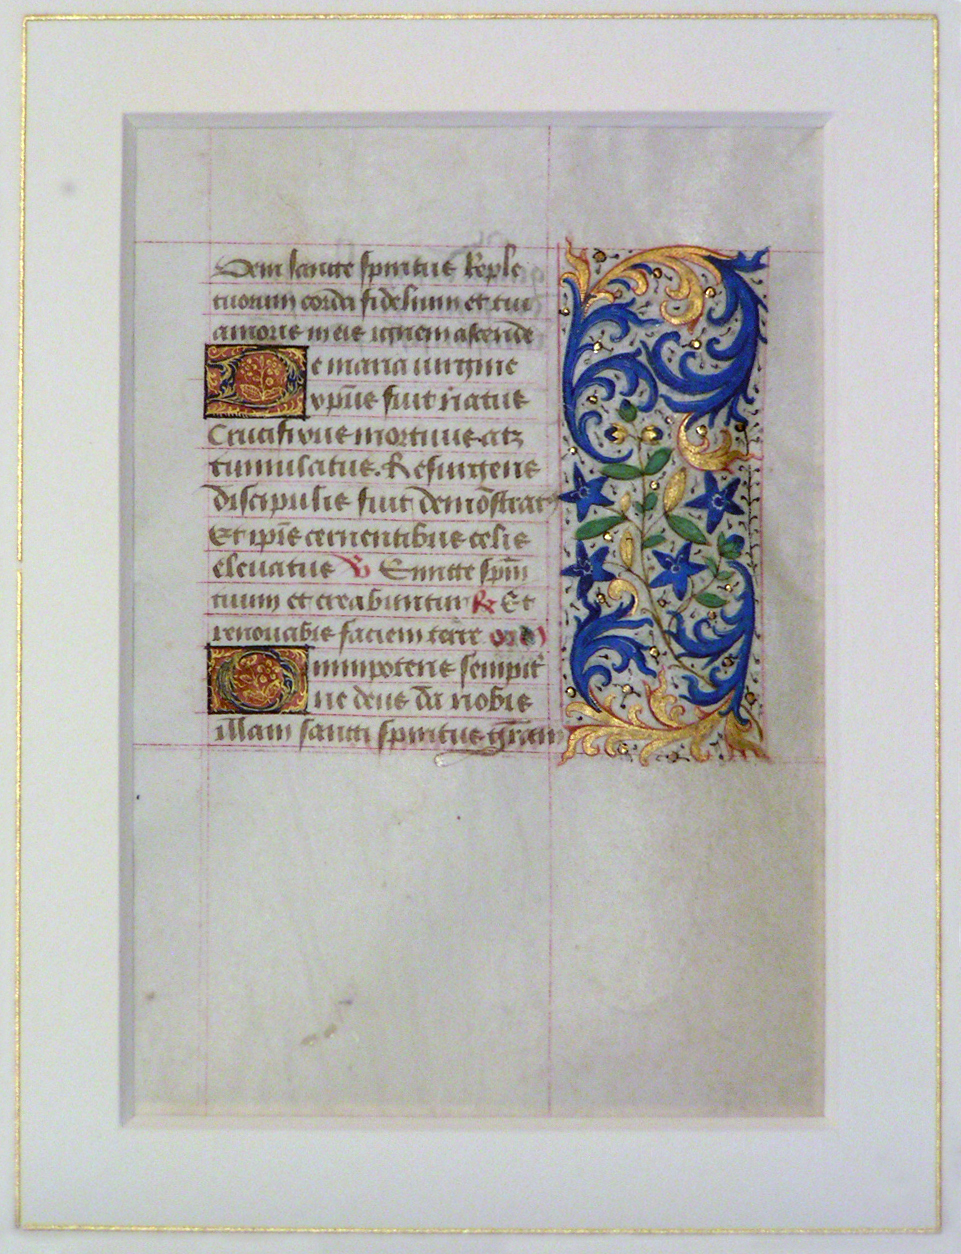 Veni sancte spiritus Reple
tuorum cordā fidelium et tui
amoris in eis ignem ascēde
De maria uirgine
xp̄us fuit natus
Crucifixus mortuus atqꝫ
tumulatus. Resurgens
discipulis fuit demōstratꝰ
Et ipīs cernentibus celis
eleuatus ℣ Emitte spm̄
tuum et creabuntur ℟ Et
renouab̄is faciem terre
Omnipotens sempit̄
ne deus dā nobis
illam sancti spiritus gr̄am